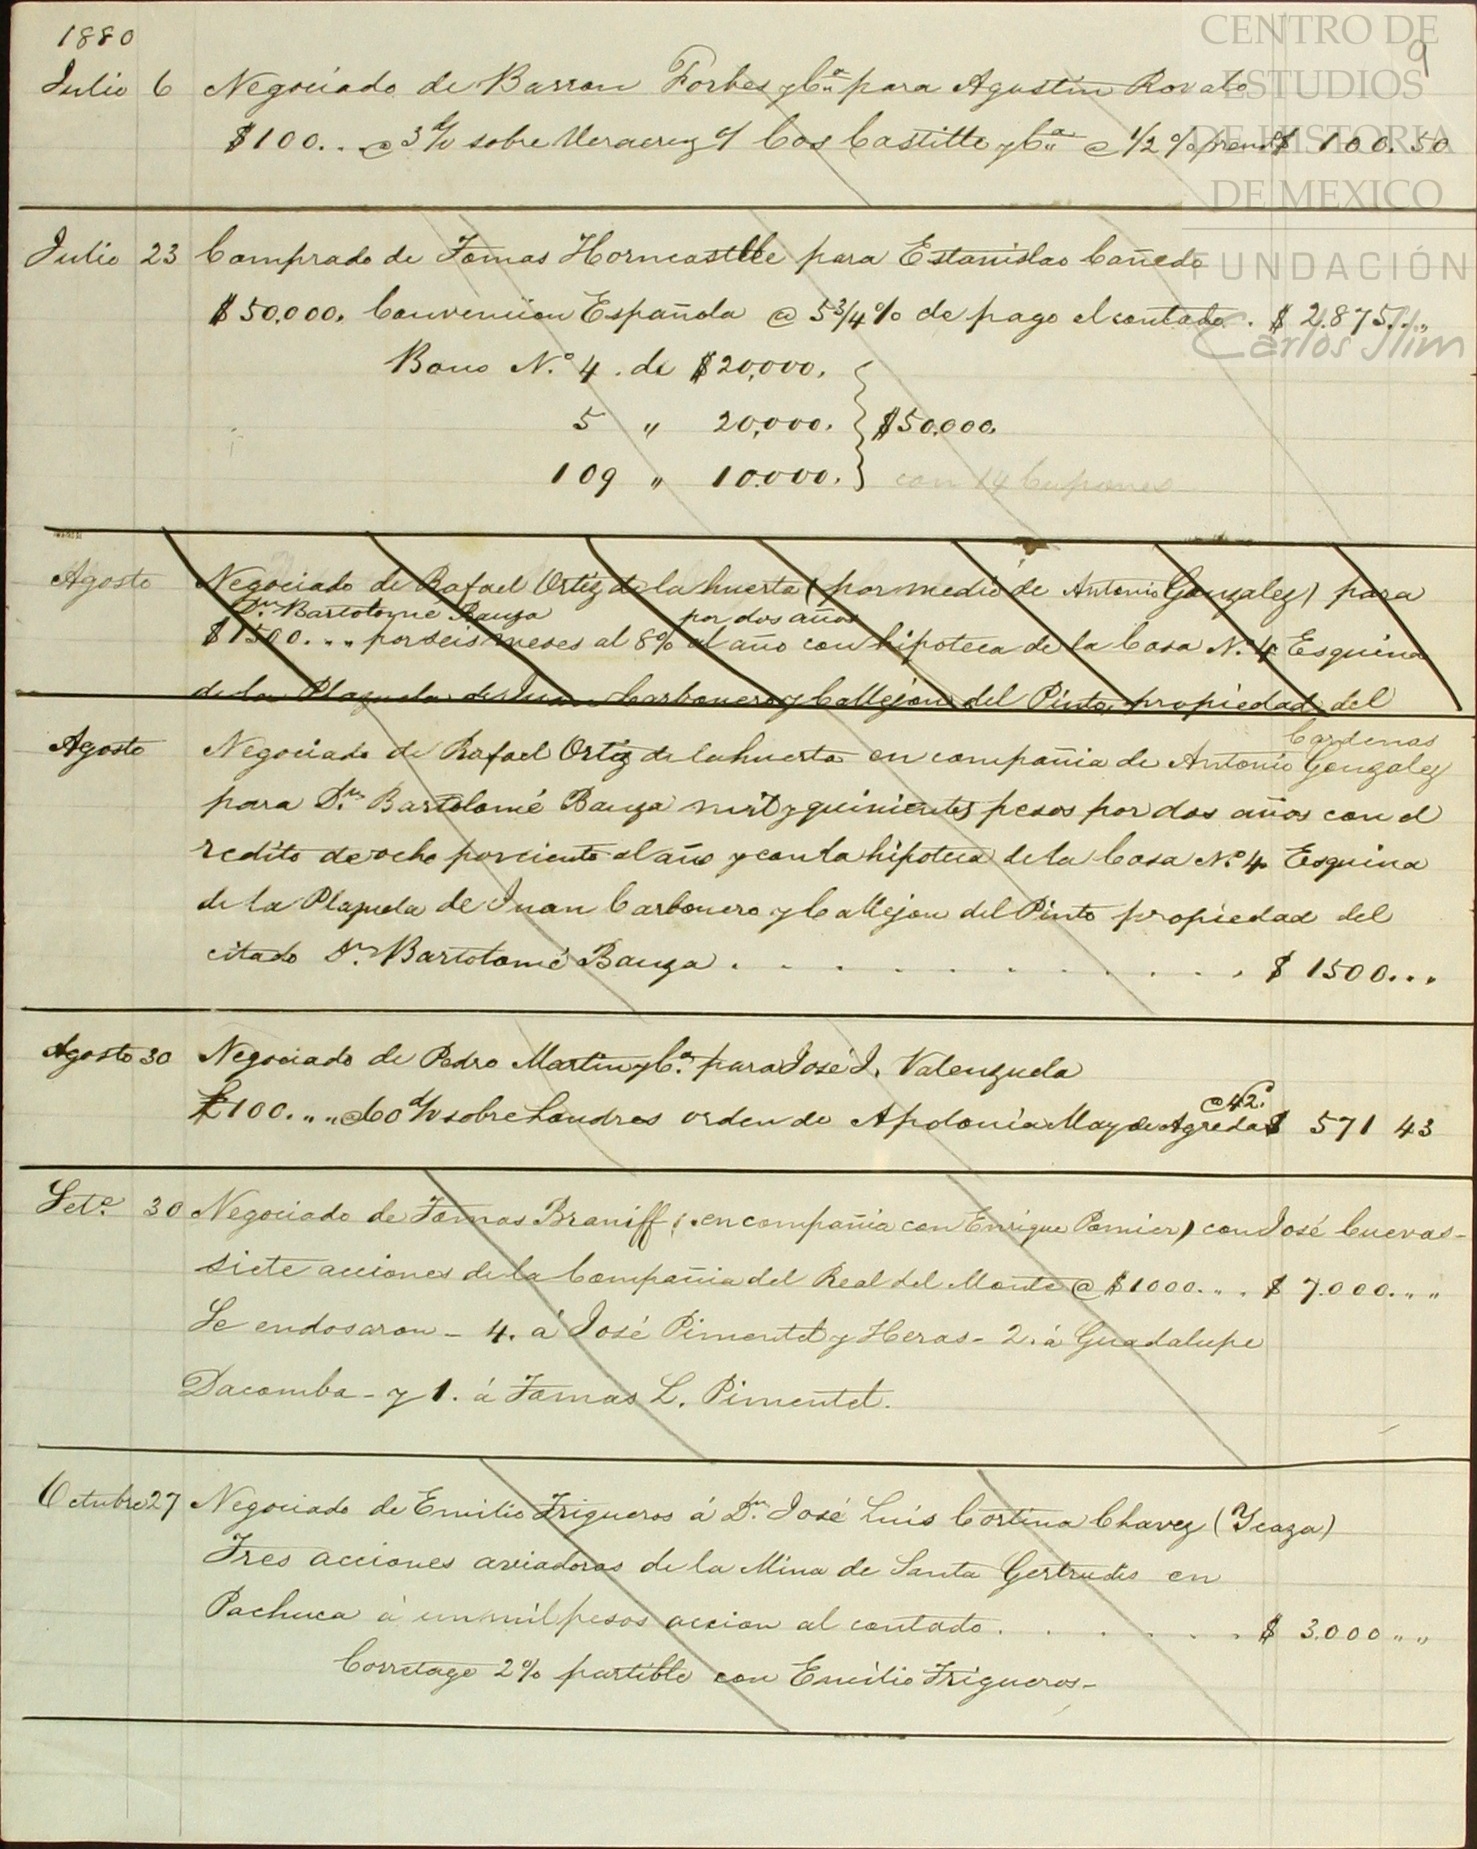 1880
9
Julio 6 Negociado de Barron Forbes y Cª para Agustin Rovalo
$100.. @ 3 d/v sobre Veracruz c/ Cos Castillo y Cª @ 1/2 % prem $ 100.50
Julio 23 Comprado de Tomas Horncastle para Estanislao Cañedo
$50,000. Convencion Española @ 5 3/4 % de pago al contado. $ 2.875. „
Bono N.º 4. de $20,000.
5 „ 20,000. } $50,000.
109 „ 10.000. } con 14 Cupones
Agosto Negociado de Rafael Ortiz de la huerta (por medio de Antonio Gonzalez) para
Dn. Bartolomé Bauza por dos años
$1500. „ „ por seis meses al 8% al año con hipoteca de la Casa N.º 4 Esquina
de la Plazuela de Juan Carbonero y Callejon del Pinto, propiedad del
Cardenas
Agosto Negociado de Rafael Ortiz de la huerta en compañia de Antonio Gonzalez
para Dn. Bartolomé Bauza mil y quinientos pesos por dos años con el
redito de ocho por ciento al año y con la hipoteca de la Casa N.º 4. Esquina
de la Plazuela de Juan Carbonero y Callejon del Pinto propiedad del
citado Dn. Bartolomé Bauza . . . . . . . . . . . $ 1500...
Agosto 30 Negociado de Pedro Martin y Cª. para José J. Valenzuela
@ 42.
£100. „ „ @ 60 d/v sobre Londres orden de Apolonia May de Agreda $ 571 43
Sete. 30 Negociado de Tomas Braniff (en compañia con Enrique Pomier) con José Cuevas-
siete acciones de la Compañia del Real del Monte @ $1000. „ . $ 7.000. „ „
Se endosaron - 4. á José Pimentel y Heras - 2. á Guadalupe
Dacomba - y 1. á Tomas L. Pimentel.
Octubre 27 Negociado de Emilio Trigueros á Dn. José Luis Cortina Chavez (Ycaza)
Tres acciones aviadoras de la Mina de Santa Gertrudis en
Pachuca á un mil pesos accion al contado. . . . . . . $ 3.000 „ „
Corretage 2% partible con Emilio Trigueros-
CENTRO DE
ESTUDIOS
DE HISTORIA
DE MEXICO
FUNDACIÓN
Carlos Slim